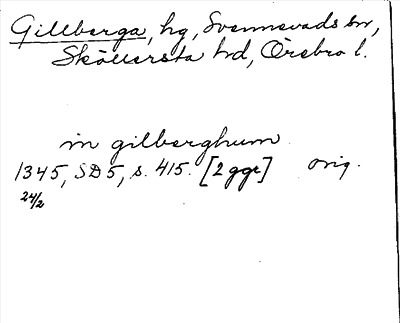 Gillberga, hg, Svennevads sn,
Sköllersta hd, Örebro l.
in gilberghum
1345, SD5, s. 415. [2 ggr] orig.
24/2